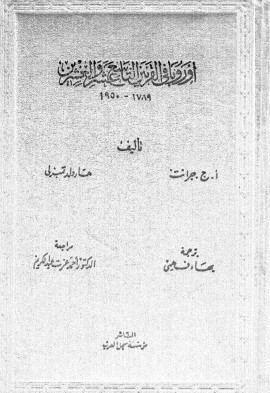 أوروبا في القرنين التاسع عشر والعشرين
١٧٨٩ - ١٩٥٠
تأليف
أ. ج. جرانت هارولد تمبرلي
ترجمة مراجعة
بهاء فهمي الدكتور أحمد عزت عبد الكريم
الناشر
مؤسسة سجل العرب